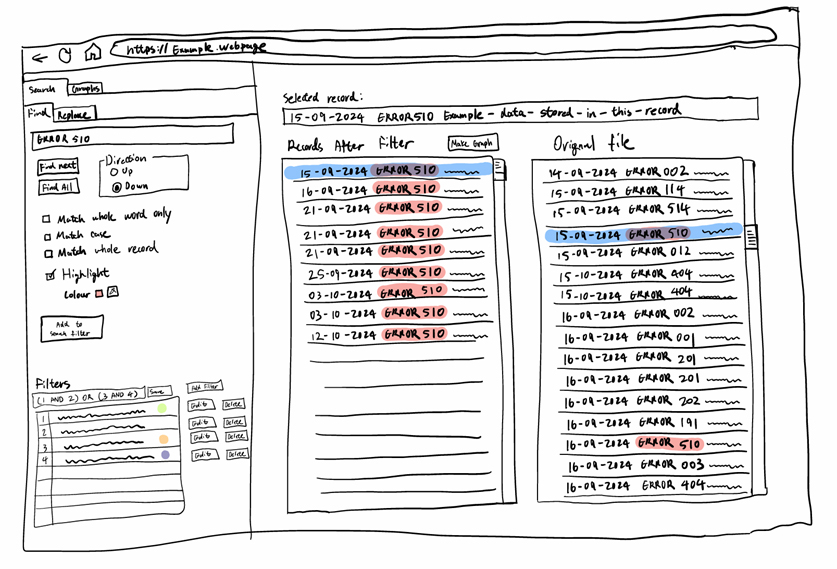 https:// Example.webpage
Search Graphs
Find Replace
ERROR 510
Find next
Find All
Direction
Up
Down
Match whole word only
Match case
Match whole record
Highlight
Colour
Add to search filter
Filters
(1 AND 2) OR (3 AND 4) Save Add Filter
1 Edit Delete
2 Edit Delete
3 Edit Delete
4 Edit Delete
Selected record:
15-09-2024 ERROR510 Example-data-stored-in-this-record
Records After Filter Make Graph
15-09-2024 ERROR 510
16-09-2024 ERROR 510
21-09-2024 ERROR 510
21-09-2024 ERROR 510
21-09-2024 ERROR 510
25-09-2024 ERROR 510
03-10-2024 ERROR 510
03-10-2024 ERROR 510
12-10-2024 ERROR 510
Original file
14-09-2024 ERROR 002
15-09-2024 ERROR 114
15-09-2024 ERROR 514
15-09-2024 ERROR 510
15-09-2024 ERROR 012
15-10-2024 ERROR 404
15-10-2024 ERROR 404
16-09-2024 ERROR 002
16-09-2024 ERROR 001
16-09-2024 ERROR 201
16-09-2024 ERROR 201
16-09-2024 ERROR 202
16-09-2024 ERROR 191
16-09-2024 ERROR 510
16-09-2024 ERROR 003
16-09-2024 ERROR 404